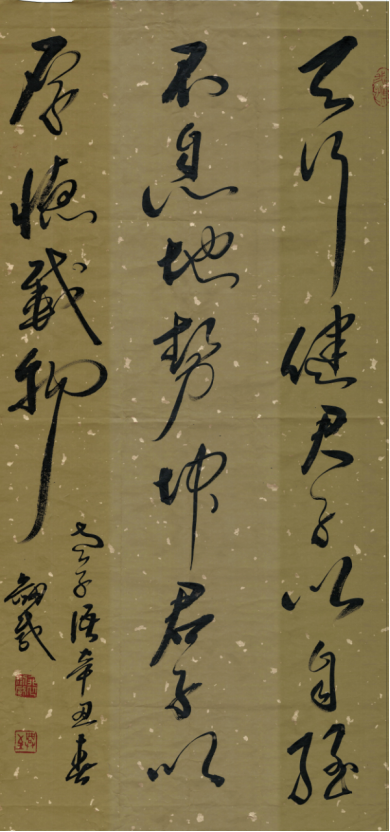 天行健君子以自强
不息地势坤君子以
厚德载物
子语辛丑春